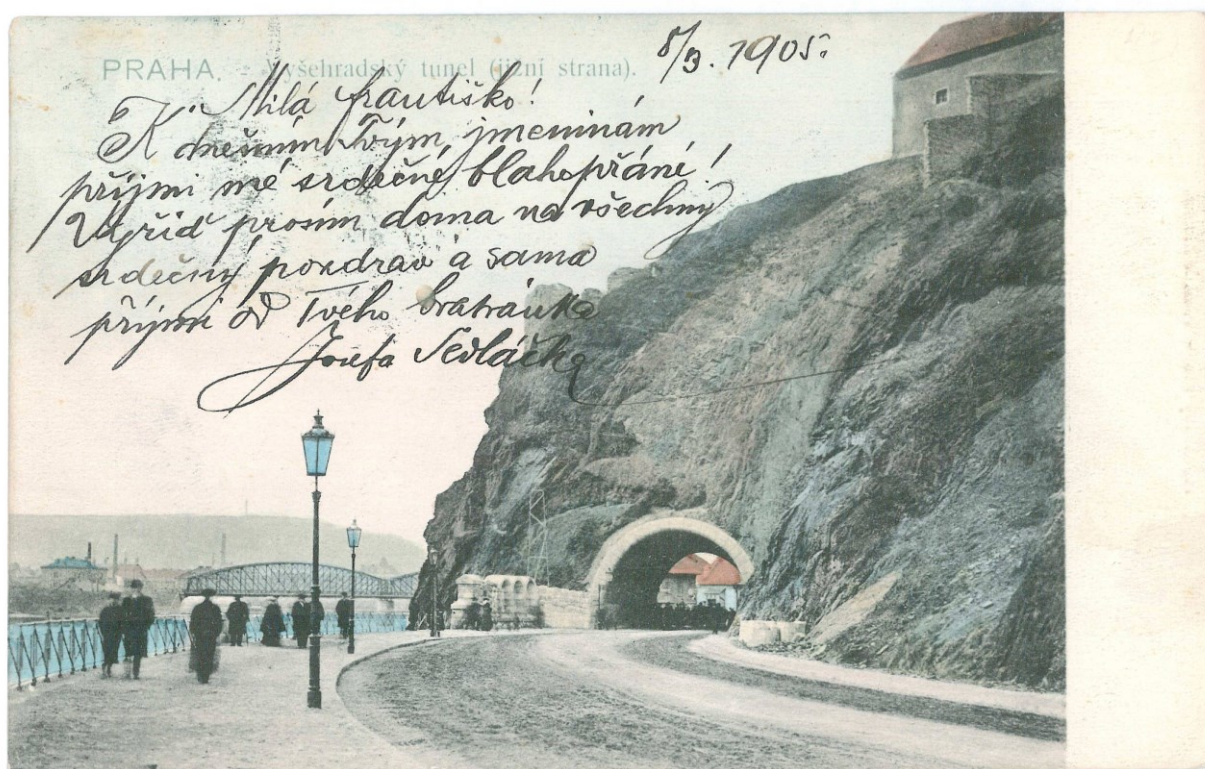 PRAHA. - Vyšehradský tunel (jižní strana).
8/3. 1905.
Milá Františko!
K dnešním Tvým jmeninám
přijmi mé srdečné blahopřání!
Vyřiď prosím doma na všechny
srdečný pozdrav a sama
přijmi od Tvého bratránka
Josefa Sedláčka